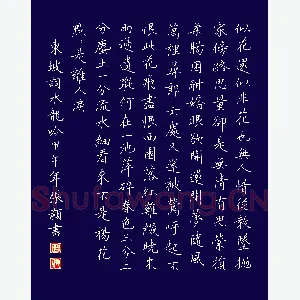 似花還似非花也無人惜從教墜拋
家傍路思量却是無情有思縈損
柔腸困酣嬌眼欲開還閉夢隨風
萬裡尋郎去處又還被鶯呼起不
恨此花飛盡恨西園落紅難綴曉來
雨過遺蹤何在一池萍碎春色三分二
分塵土一分流水細看來不是楊花
點是離人淚
東坡詞水龍吟甲午年書
Shufawang.CN